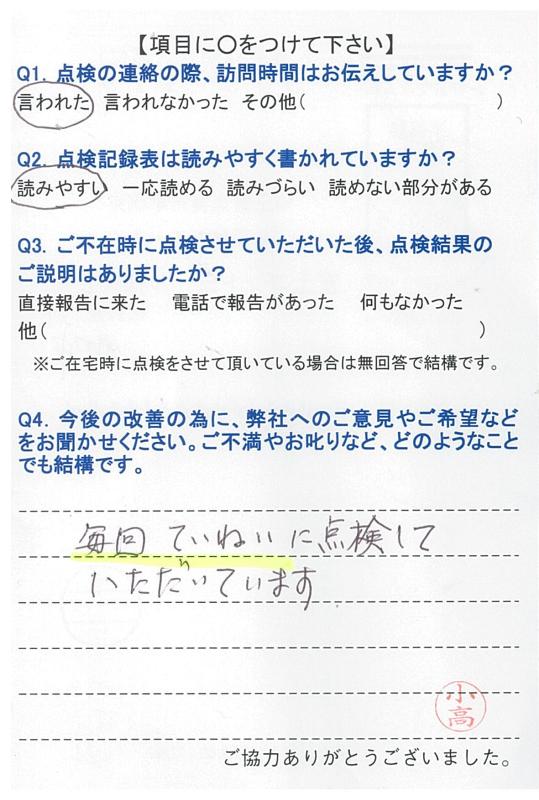 【項目に〇をつけて下さい】
Q1. 点検の連絡の際、訪問時間はお伝えしていますか？
言われた 言われなかった その他( )
Q2. 点検記録表は読みやすく書かれていますか？
読みやすい 一応読める 読みづらい 読めない部分がある
Q3. ご不在時に点検させていただいた後、点検結果の
ご説明はありましたか？
直接報告に来た 電話で報告があった 何もなかった
他( )
※ご在宅時に点検をさせて頂いている場合は無回答で結構です。
Q4. 今後の改善の為に、弊社へのご意見やご希望など
をお聞かせください。ご不満やお叱りなど、どのようなこと
でも結構です。
毎回 ていねいに点検して
いただいています
小高
ご協力ありがとうございました。